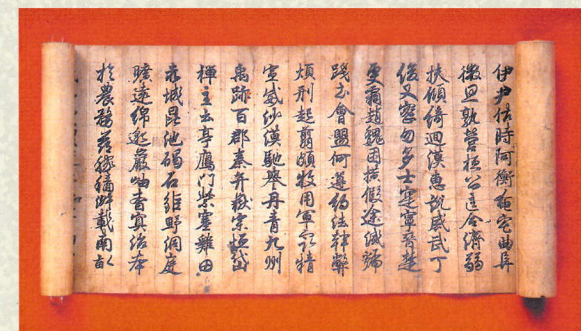 伊尹佐時阿衡奄宅曲阜
微旦孰營桓公匡合濟弱
扶傾綺迴漢惠說感武丁
俊乂密勿多士寔寧晉楚
更霸趙魏困橫假途滅虢
踐土會盟何遵約法韓弊
煩刑起翦頗牧用軍最精
宣威沙漠馳譽丹青九州
禹跡百郡秦并嶽宗恒岱
禪主云亭鴈門紫塞雞田
赤城昆池碣石鉅野洞庭
曠遠綿邈巖岫杳冥治本
於農務茲稼穡俶載南畝